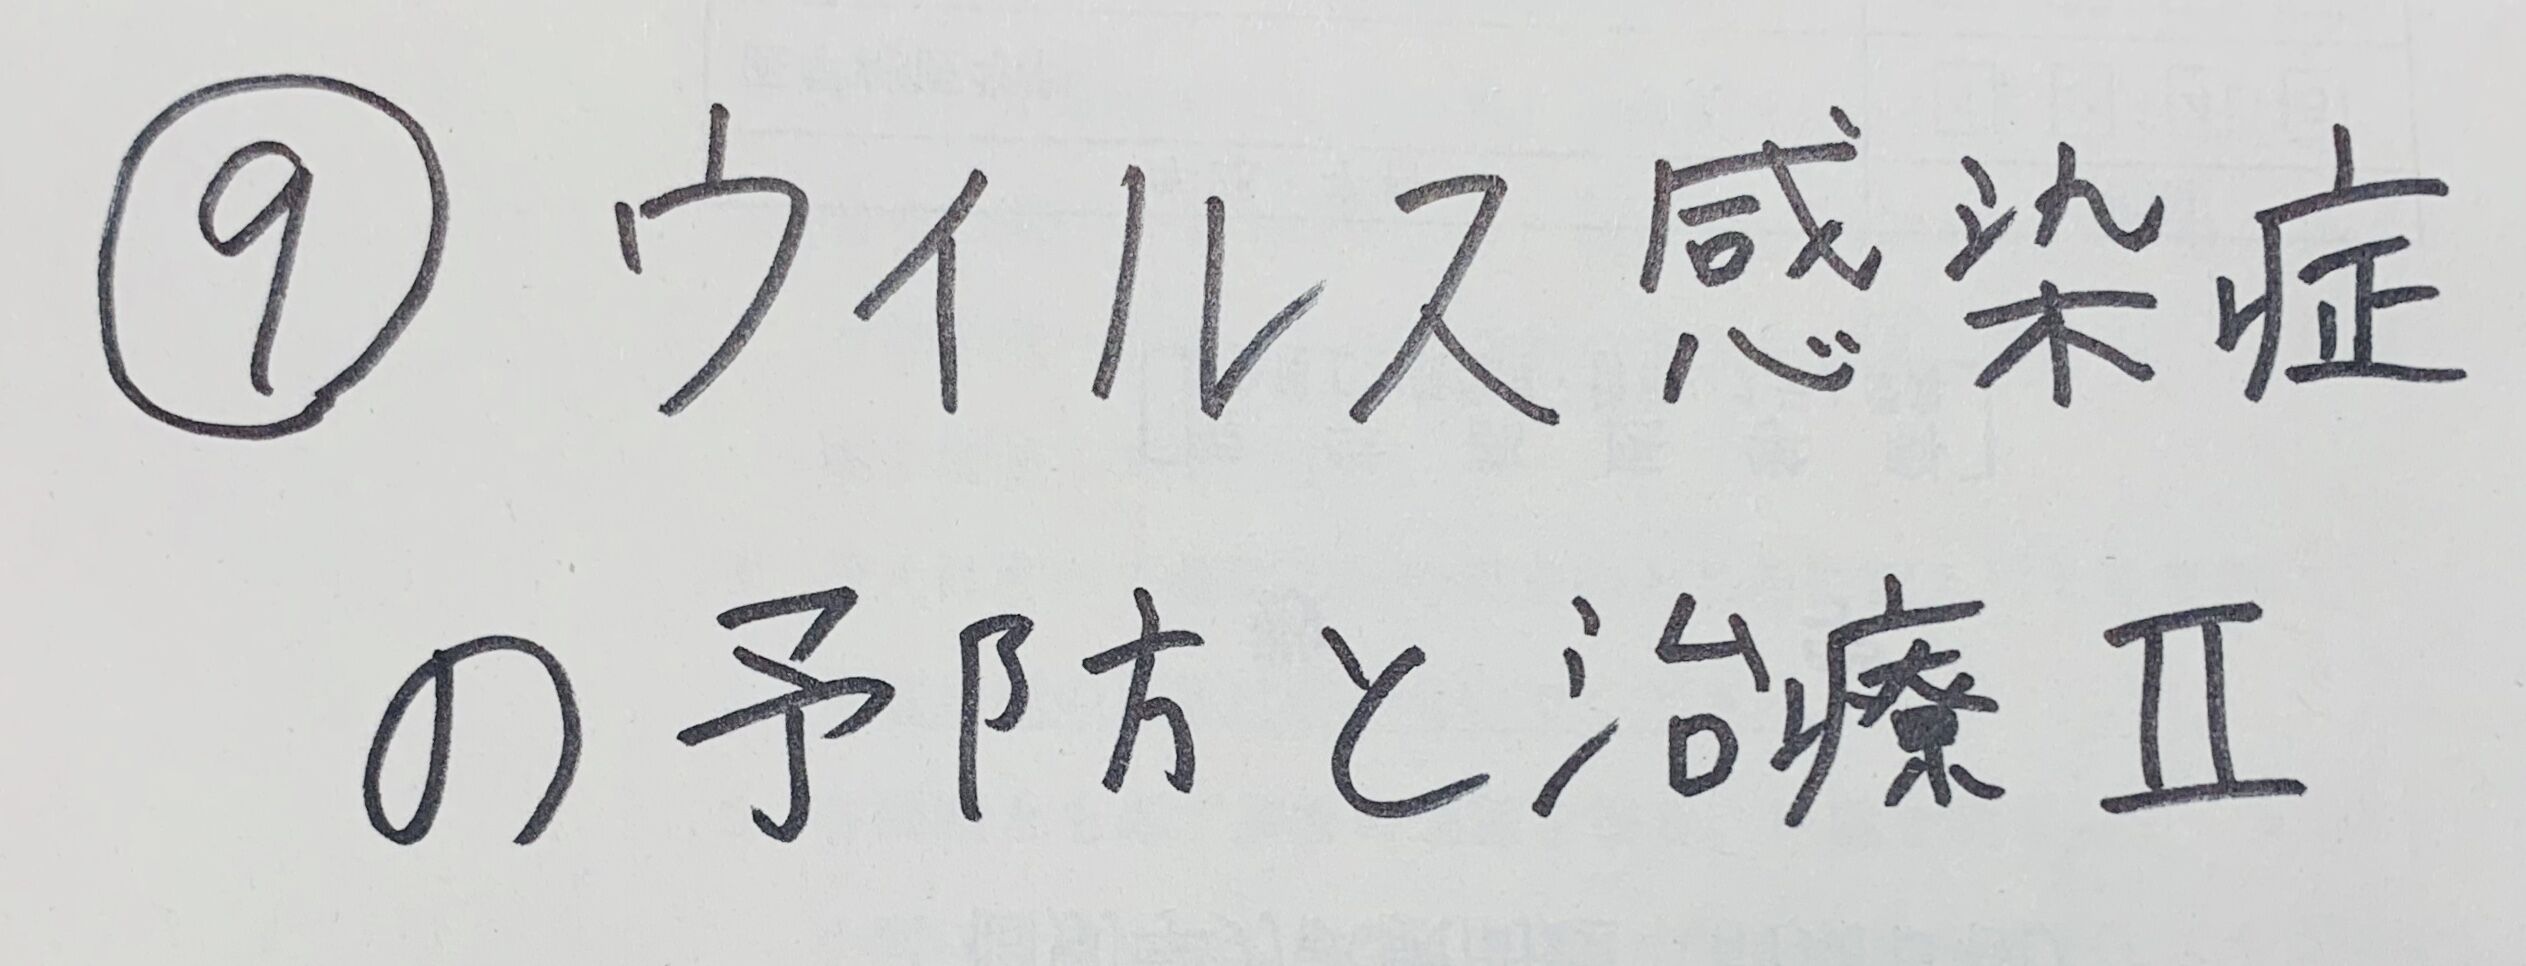 ⑨ ウイルス感染症
の予防と治療 Ⅱ